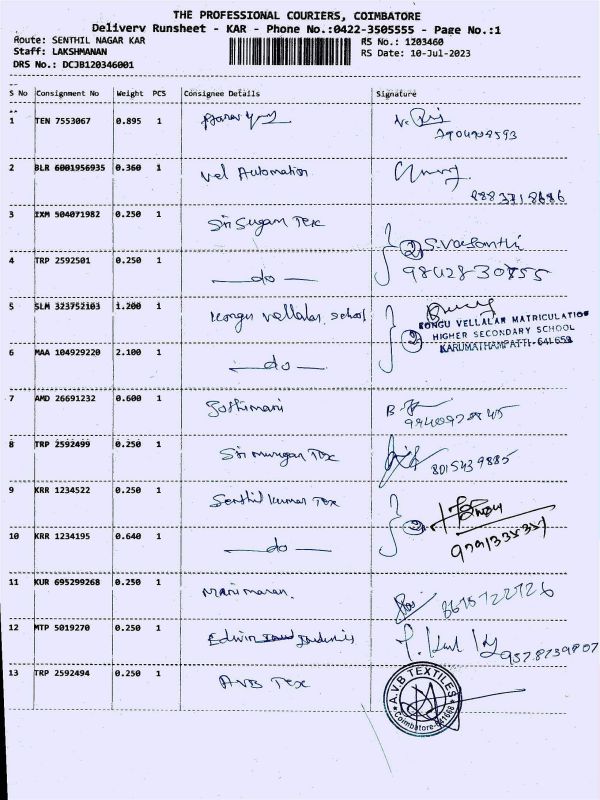 THE PROFESSIONAL COURIERS, COIMBATORE
Delivery Runsheet - KAR - Phone No.:0422-3505555 - Page No.:1
Route: SENTHIL NAGAR KAR
RS No.: 1203460
Staff: LAKSHMANAN
RS Date: 10-Jul-2023
DRS No.: DCJB120346001
S No Consignment No Weight PCS Consignee Details Signature
1 TEN 7553067 0.895 1
2 BLR 6001956935 0.360 1 Vel Automation
3 IXM 504071982 0.250 1 Sri Sugam Tex
2 S.Vasanthi
4 TRP 2592501 0.250 1 —do—
98428-30855
5 SLM 323752103 1.200 1 Kongu Vellalar school
KONGU VELLALAR MATRICULATION
HIGHER SECONDARY SCHOOL
2 KARUMATHAMPATTI-641659
6 MAA 104929220 2.100 1 —do—
7 AMD 26691232 0.600 1 Jothimani
8 TRP 2592499 0.250 1 Sri murugan Tex
8015439885
9 KRR 1234522 0.250 1 Senthil kumar Tex
2
10 KRR 1234195 0.640 1 —do—
11 KUR 695299268 0.250 1 Manimaran.
12 MTP 5019270 0.250 1 Edwin
13 TRP 2592494 0.250 1 A.V.B Tex
A.V.B TEXTILES
Coimbatore-641668